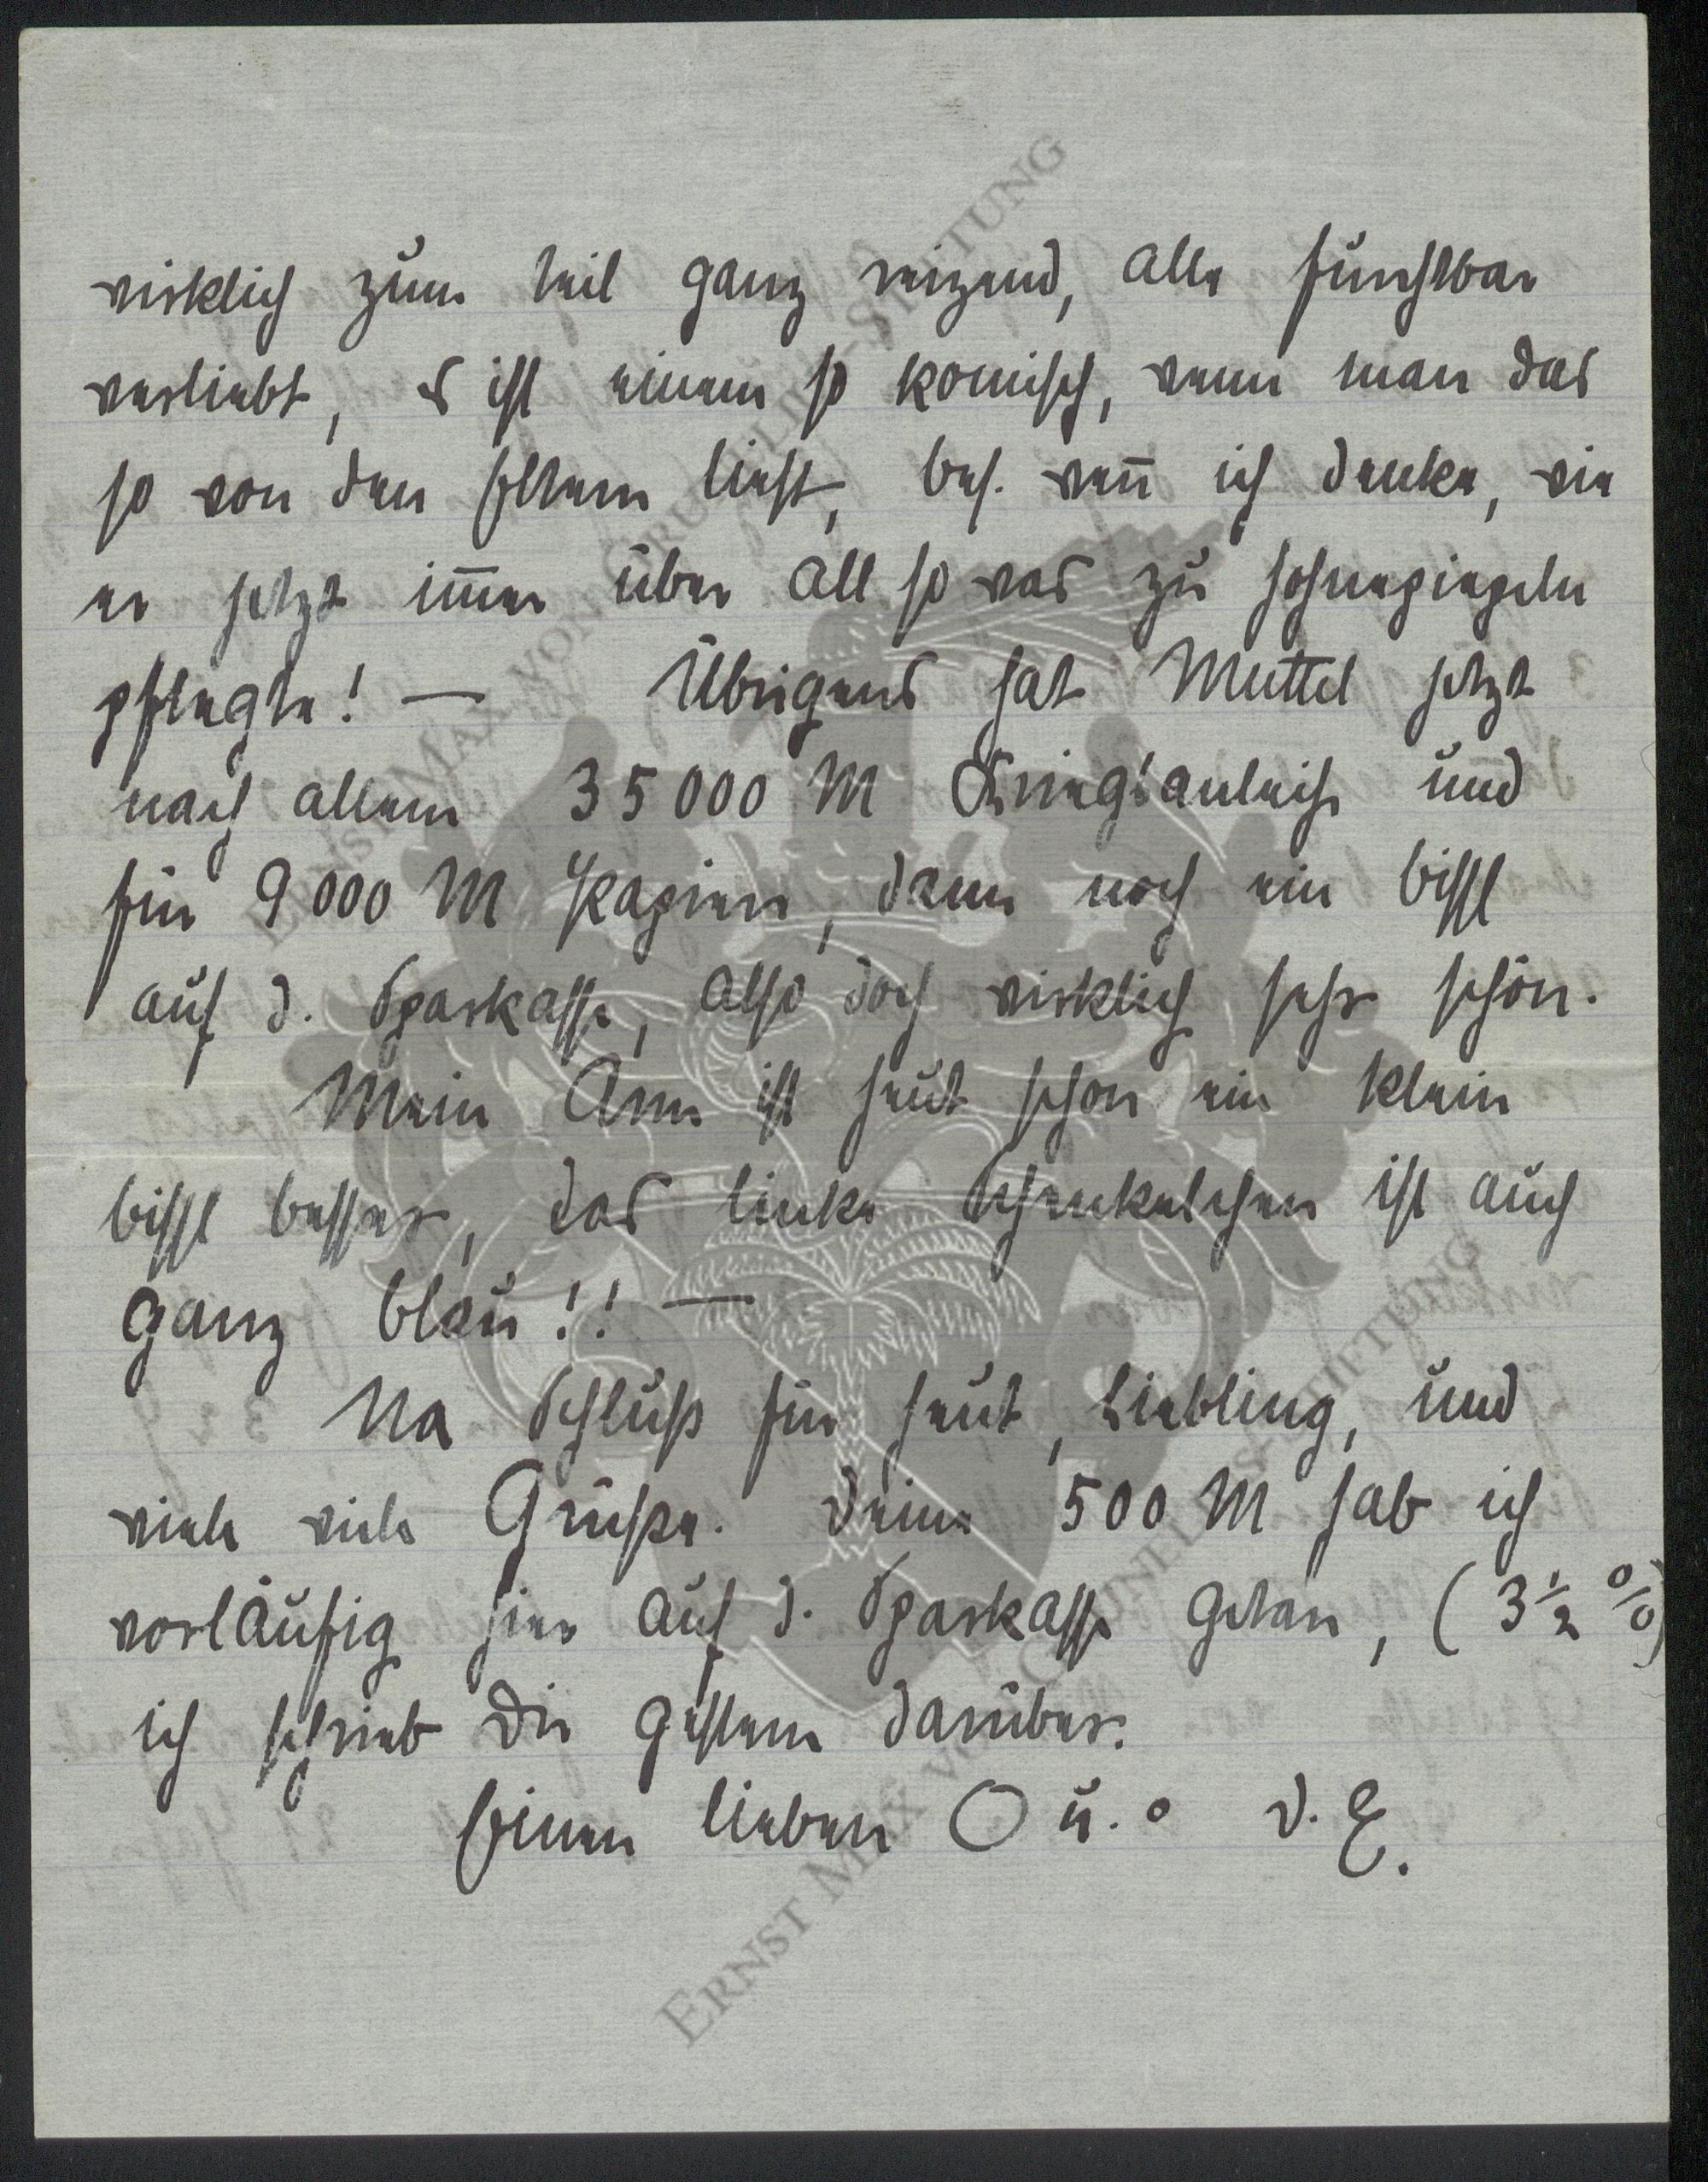 wirklich zum teil ganz reizend, alle furchtbar
verliebt, es ist einem so komisch, wenn man das
so von den Eltern liest, bes. wenn̄ ich denke, wie
er jetzt im̄er über all so was zu
pflegte! — Übrigens hat Muttel jetzt
nach allem 35000 M Kriegsanleihe und
für 9000 M Papiere, dann noch ein bissl
auf d. Sparkasse, also doch wirklich sehr schön.
Mein Arm ist heut schon ein klein
bissl besser, das linke Schenkelchen ist auch
ganz blau!! —
Na Schluß für heut, Liebling, und
viele viele Grüße. Deine 500 M hab ich
vorläufig hier auf d. Sparkasse getan, (3½ %)
ich schrieb Dir gestern darüber.
Einen lieben O u. o D. E.
ERNST MAX VON GRUNELIUS-STIFTUNG
ERNST MAX VON GRUNELIUS-STIFTUNG